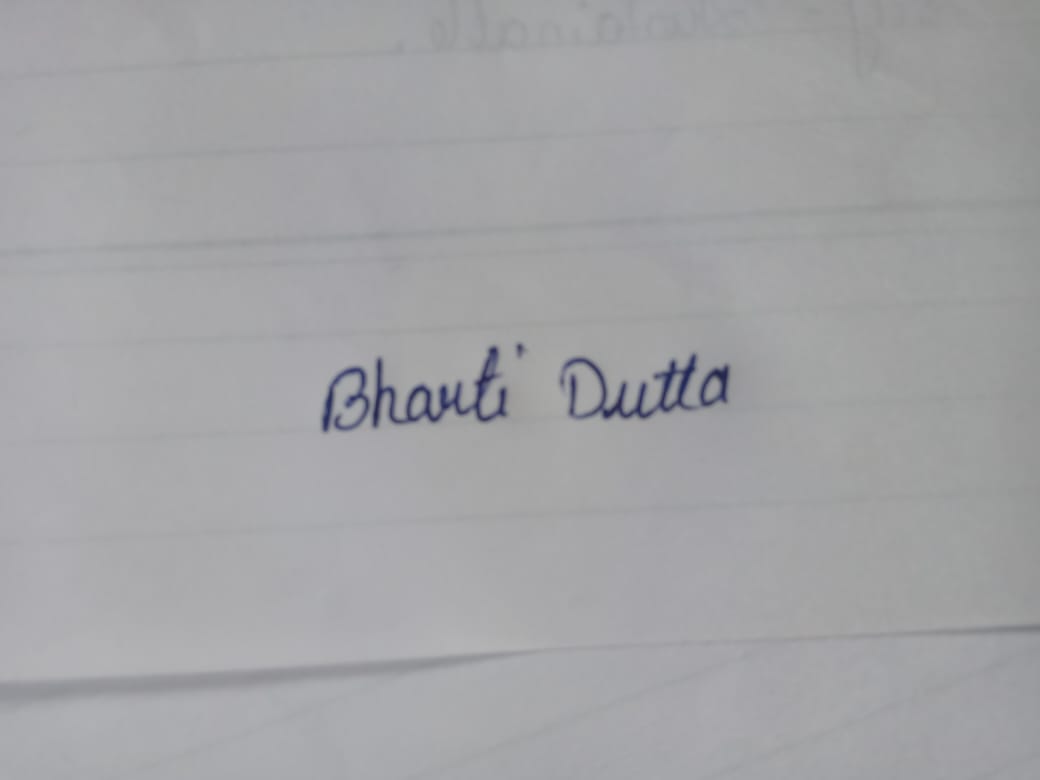 Bharti Dutta